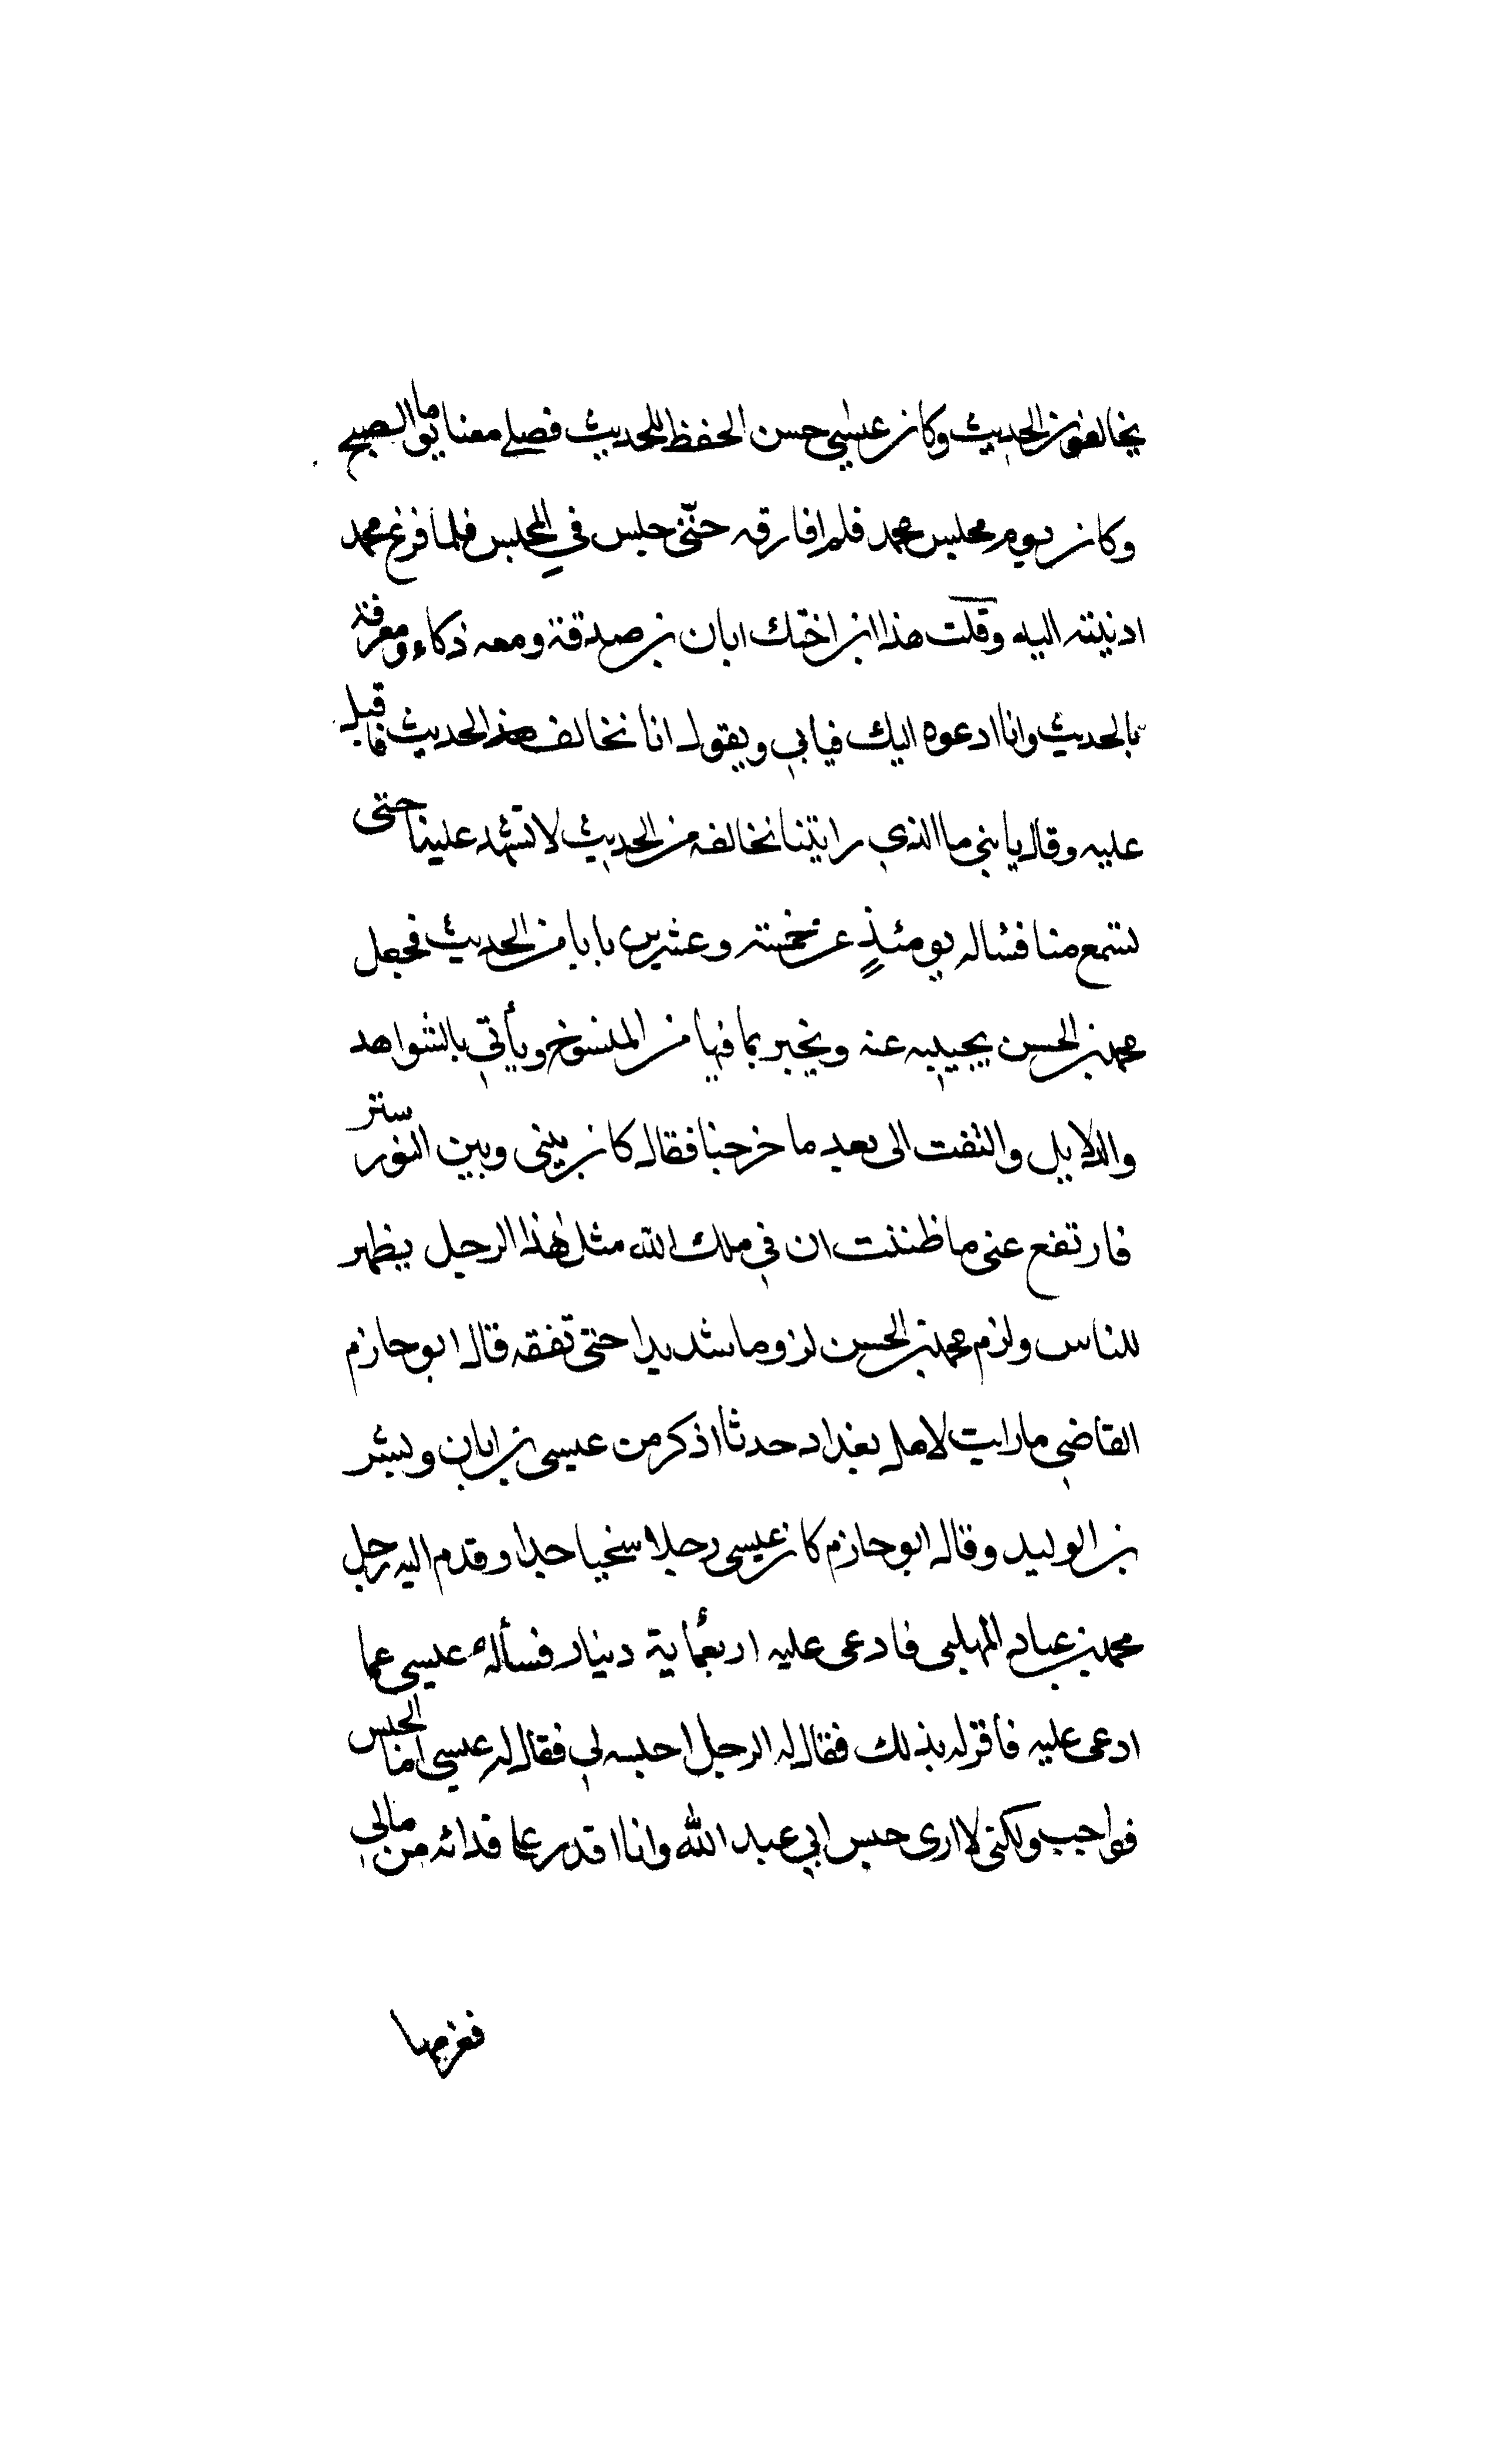 يخالفون الحديث وكان عيسى حسن الحفظ للحديث فصلى معنا يوما الصبح
وكان يوم مجلس محمد فلم افارقه حتى جلس في المجلس فلما فرغ محمد
ادنيته اليه وقلت هذا ابن اختك ابان بن صدقة ومعه ذكاء ومعرفة
بالحديث وانا ادعوه اليك فيابي ويقول انا نخالف هذا الحديث فاقبل
عليه وقال يا بنى ما الذي رايتنا نخالفه من الحديث لا تشهد علينا حتى
تستمع منا فساله يومئذٍ عن خمسة وعشرين بابا من الحديث فجعل
محمد بن الحسن يجيبه عنه ويخبر بما فيها من المنسوخ ويأتي بالشواهد
والدلايل والتفت الى بعد ما خرجنا فقال كان بينى وبين النور ستر
فارتفع عنى ما ظننت ان في ملك الله مثل هذا الرجل يظهر
للناس ولزم محمد بن الحسن لزوما شديدا حتى تفقه قال ابو حازم
القاضي ما رايت لاهل بغداد حدثا اذكر من عيسى بن ابان وبشر
بن الوليد وقال ابو حازم كان عيسى رجلا سخيا جدا وقدم اليه رجل
محمد بن عباد المهلبى فادعى عليه اربعمأية دينار فسأله عيسى عما
ادعى عليه فاقر له بذلك فقال له الرجل احبسه لي فقال له عيسى اما الحبس
فواجب ولكنى لا ارى حبس ابي عبد الله وانا اقدر على فدائه من مالي
فغرمها